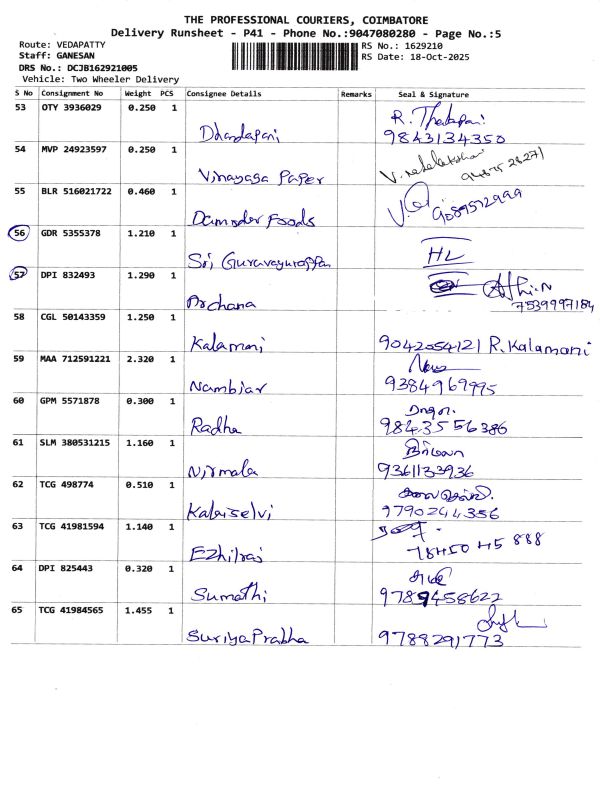 THE PROFESSIONAL COURIERS, COIMBATORE
Delivery Runsheet - P41 - Phone No.:9047080280 - Page No.:5
Route: VEDAPATTY RS No.: 1629210
Staff: GANESAN RS Date: 18-Oct-2025
DRS No.: DCJB162921005
Vehicle: Two Wheeler Delivery
S No Consignment No Weight PCS Consignee Details Remarks Seal & Signature
53 OTY 3936029 0.250 1
Dhandapani 9843134350
54 MVP 24923597 0.250 1
Vinayaga Paper
55 BLR 516021722 0.460 1
Damoder Foods 9089512999
56 GDR 5355378 1.210 1
Sri Guruvayurappan HL
57 DPI 832493 1.290 1
Archana Athi.N 7539997184
58 CGL 50143359 1.250 1
Kalamani 9042054121 R.Kalamani
59 MAA 712591221 2.320 1
Nambiar 9384969995
60 GPM 5571878 0.300 1
Radha 9843556386
61 SLM 380531215 1.160 1
Nirmala நிர்மலா 9361133936
62 TCG 498774 0.510 1
Kalaiselvi 9790244356
63 TCG 41981594 1.140 1
Ezhilraj 78450 45 888
64 DPI 825443 0.320 1
Sumathi 9789458622
65 TCG 41984565 1.455 1
SuriyaPrabha 9788291773